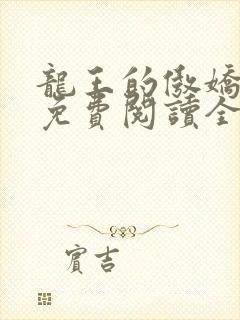 龍王的傲嬌
免費閱讀全
賓吉